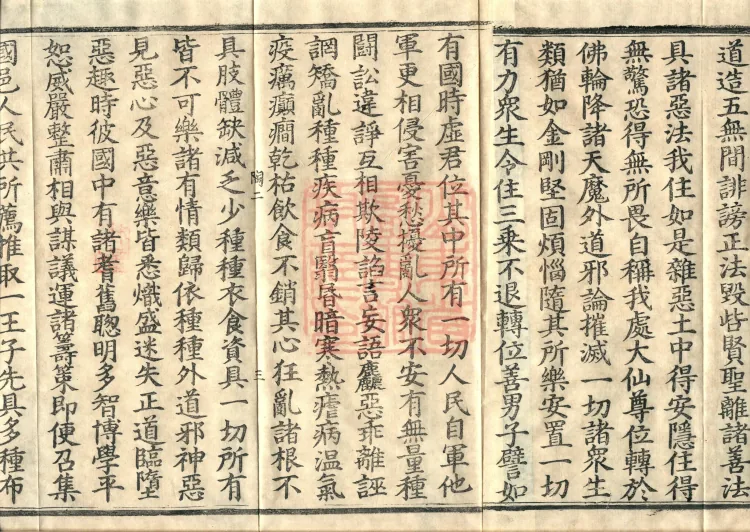 道造五無間誹謗正法毀呰賢聖離諸善法
具諸惡法我住如是雜惡土中得安隱住得
無驚恐得無所畏自稱我處大仙尊位轉於
佛輪降諸天魔外道邪論摧滅一切諸衆生
類猶如金剛堅固煩惱隨其所樂安置一切
有力衆生令住三乘不退轉位善男子譬如
有國時虛君位其中所有一切人民自軍他
軍更相侵害憂愁擾亂人衆不安有無量種
鬪訟違諍互相欺陵諂言妄語麤惡乖離誣
誷矯亂種種疾病盲翳昬暗寒熱瘧病温氣
疫癘癲癇乾枯飲食不銷其心狂亂諸根不
具肢體缺減乏少種種衣食資具一切所有
陶二
三
皆不可樂諸有情類歸依種種外道邪神惡
見惡心及惡意樂皆悉熾盛迷失正道臨墮
惡趣時彼國中有諸耆舊聰明多智博學平
恕威嚴整肅相與謀議運諸籌策即便召集
國邑人民共所薦推取一王子先具多種布